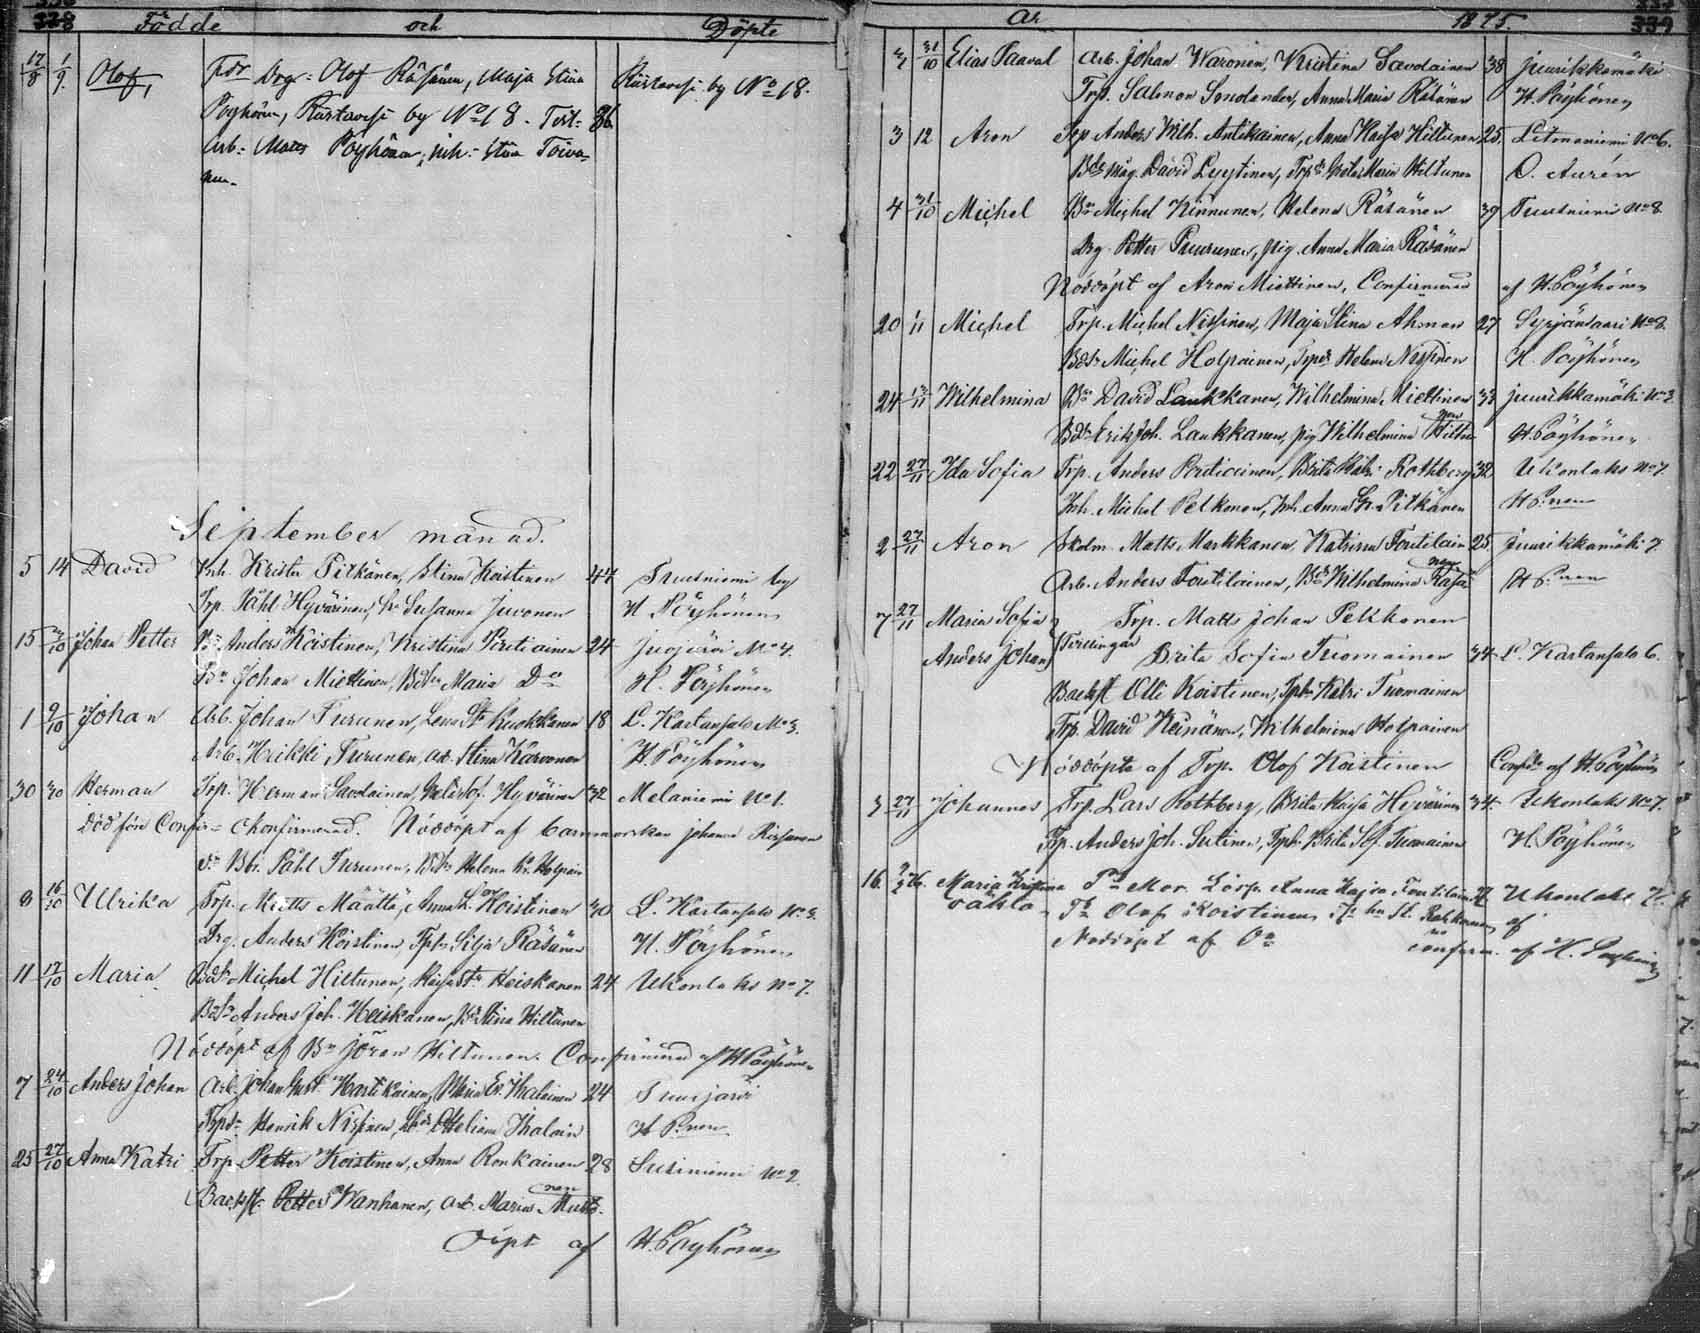 338 Födde och Döpte
17/8 1/9 Olof, För Drg: Olof Räsänen, Maja Stina Riistavesi by No 18.
Pöyhönen, Riistavesi by No 18. Test: 36
Arb: Matts Pöyhönen, inh: Stina Toiva-
nen.
September månad.
5 14 David Inh. Krister Pitkänen, Stina Koistinen 44 Tuusniemi by
Trp. Påhl Hyvärinen, Susanna Juvonen H Pöyhönen
15 /10 Johan Petter Bn Anders Koistinen, Kristina Partiainen 24 Juojärvi No 4.
Bn Johan Miettinen, Maria Do H. Pöyhönen
1 9/10 Johan Arb. Johan Turunen, Lena St Ruokkanen 18 L. Kartansalo No 3.
Arb. Heikki Turunen, Arb. Stina Karvonen H Pöyhönen
30 /10 Herman Trp. Herman Savolainen, Greta Sof. Hyvärinen 32 Melaniemi No 1.
Död före Confir= Okonfirmerad. Nöddöpt af barnmorskan Johanna
Påhl Turunen, Helena Holpain
8 16/10 Ulrika Trp. Matts Määttä, Anna L. Koistinen 30 L. Kartansalo No 3.
Drg. Anders Koistinen, Silja Räsänen H. Pöyhönen
11 17/10 Maria Michel Hiltunen, Kaisa St Heiskanen 24 Ukonlaks No 7.
Anders Joh. Heiskanen, Stina Hiltunen
Nöddöpt af Bn Jöran Hiltunen. Confirmerad af H Pöyhönen
7 24/10 Anders Johan Arb. Johan Gust. Hartikainen, Maria Ev. Ihalainen 24 Tuusjärvi
Henrik Nissinen, Heliena Ihalain H P:nen
25 27/10 Anna Katri Trp. Petter Koistinen, Anna Ronkainen 28 Susiniemi No 2.
nen
Backst. Petter Wanhanen, Arb. Maria Musto-
Döpt af H. Pöyhönen
År 1875. 339
3 31/10 Elias Paaval Arb. Johan Waronen, Kristina Savolainen 38 Juurikkamäki
Trp. Salmon Sundander, Anna Maria Räsänen H. Pöyhönen
3 12 Aron Anders Wilh. Antikainen, Anna Kaisa Hiltunen 25. Litmaniemi No 6.
måg. David Lyytinen, Greta Maria Hiltunen O. Aurén
4 31/10 Michel Bn Michel Kinnunen, Helena Räsänen 39 Tuusniemi No 8.
Drg. Petter Puurunen, pig. Anna Maria Räsänen
Nöddöpt af Aron Miettinen, Confirmerad af H. Pöyhönen
20 1/11 Michel Trp. Michel Nissinen, Maja Stina Ahonen 27 Syrjänsaari No 8.
Michel Holpainen, Helena Nissinen H. Pöyhönen
24 /11 Wilhelmina Bn David Laukkanen, Wilhelmina Miettinen 33 Juurikkamäki No 3.
nen
Erik Joh. Laukkanen, pig Wilhelmina H. Pöyhönen
22 27/11 Ida Sofia Trp. Anders Partiainen, Brita Kat. Rothberg 32 Ukonlaks No 7.
Inh. Michel Pelkonen, Inh. Anna Pitkänen H P:nen
2 27/11 Aron Skolm. Matts Markkanen, Katrina Toutilain 25 Juurikkamäki 7.
nen
Arb. Anders Toutilainen, Wilhelmina Räsä H P:nen
7 27/11 Maria Sofia Trp. Matts Johan Pekkonen
Anders Johan Tvillingar Brita Sofia Tuomainen 34 L. Kartansalo 6.
Backst Olli Koistinen, Katri Tuomainen
Trp. David Keinänen, Wilhelmina Holpainen
Nöddöpta af Trp. Olof Koistinen Confde af H. Pöyhönen
3 27/11 Johannes Trp. Lars Rothberg, Brita Kaisa Hyvärinen 34 Ukonlaks No 7.
Trp. Anders Joh. Sutinen, Brita Sof. Tuomainen H. Pöyhönen
16. 76. Maria Kristina Mor. Lösp. Anna Kajsa Toutilain Ukonlaks 7.
oäkta Olof Koistinen, St. Rekkonen af
Nöddöpt af Do confirm. af H. Pöyhönen